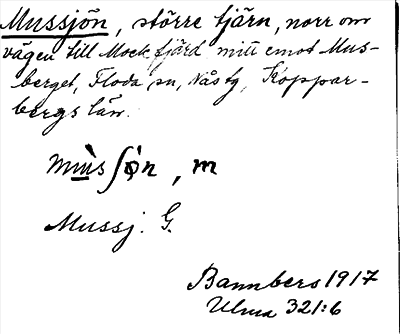 Mussjön, större tjärn, norr om
vägen till Mockfjärd mitt emot Mus-
berget, Floda sn, Nås tg, Koppar-
bergs län.
mùsʃọ̈n, m
Mussj. G.
Bannbers 1917
Ulma 321:6